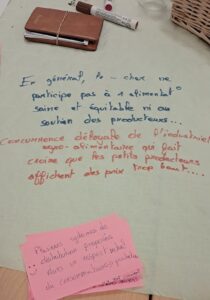 En général, le - cher ne
participe pas à 1 alimentat°
saine et équitable ni au
soutien des producteurs...
Concurrence déloyale de l'industriel
agro-alimentaire qui fait
croire que les petits producteurs
affichent des prix trop haut...
Plusieurs systèmes de
distribution proposées
dans le respect mutuel
du consommateur